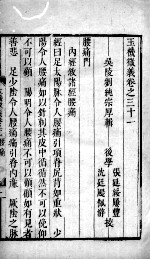 玉機微義卷之三十一
吳陵劉純宗厚輯 後學 張廷綬履豐 校
沈廷颺佩
腰痛門
內經敘諸經腰痛
經曰足太陽脈令人腰痛引項脊尻背如重狀 少
陽令人腰痛如以針刺其皮中循循然不可以俛仰
不可以顧 陽明令人腰痛不可以顧顧如有見者
善悲 足少陰令人腰痛痛引脊內廉 厥陰之脈